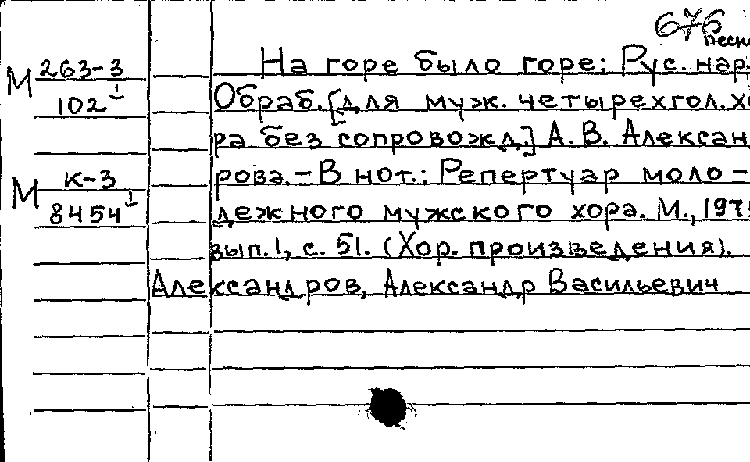 676
песн
М 263-3 На горе было горе: Рус. нар.
102 Обраб. [для муж. четырехгол. х
ра без сопровожд.] А. В. Алексан
М К-3 рова. – В нот.: Репертуар моло-
8454 дежного мужского хора. М., 197
вып. 1, с. 51. (Хор. произведения).
Александров, Александр Васильевич